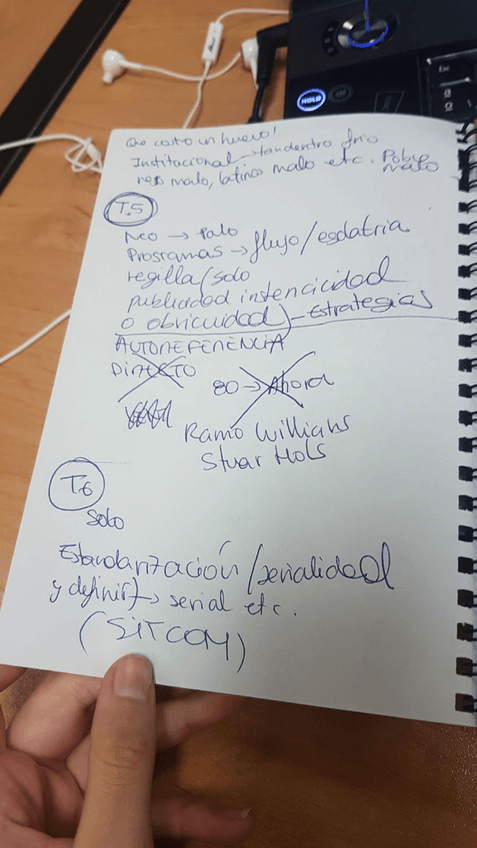 Que costo un huevo!
Institucional → tandentro frio
nego malo, latinos malo etc. Pobre malo
T.5
Neo → Palo
Programas → flujo/
regilla/solo
publicidad
o obvicuidad) - Estrategias
AUTOREFERENCIA
DIRECTO
80 → Ahora
Ramo Willians
Stuar Hols
T6
Solo
Estandarización/serialidad
y definir → serial etc.
(SITCOM)
HOLD
Esc